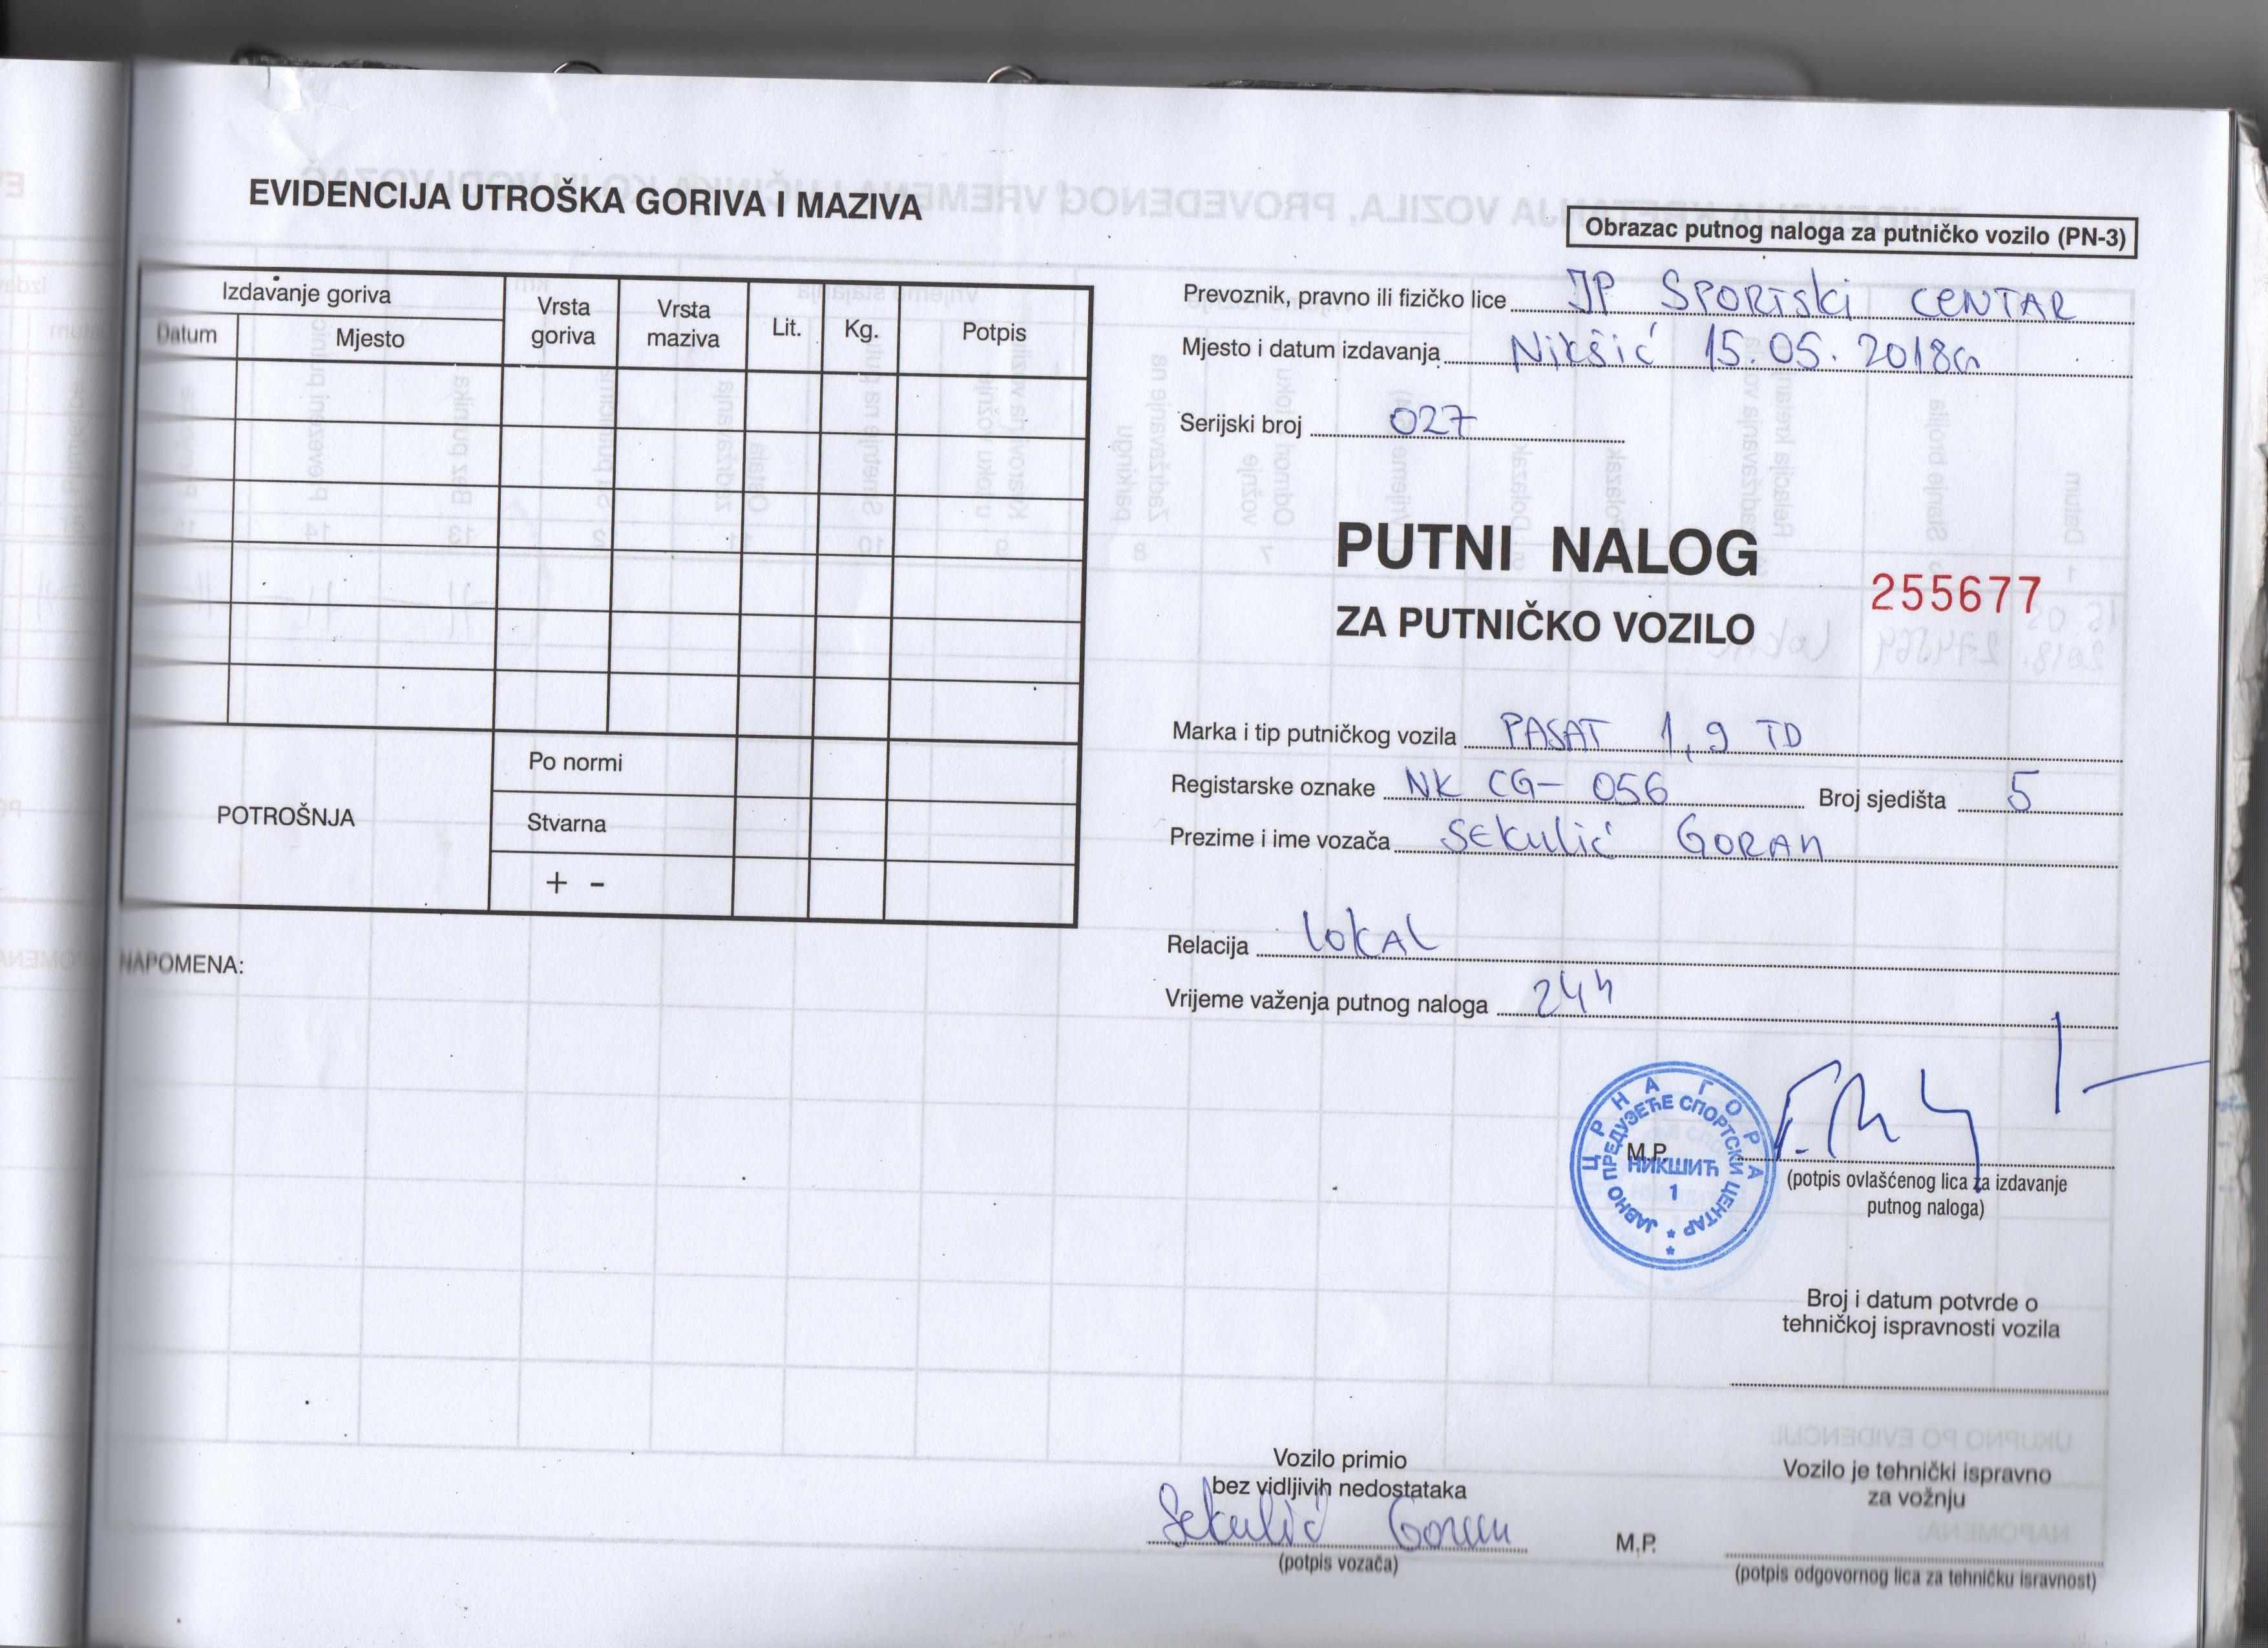 EVIDENCIJA UTROŠKA GORIVA I MAZIVA
Izdavanje goriva
Datum
Mjesto
Vrsta goriva
Vrsta maziva
Lit.
Kg.
Potpis
POTROŠNJA
Po normi
Stvarna
+ -
NAPOMENA:
Obrazac putnog naloga za putničko vozilo (PN-3)
Prevoznik, pravno ili fizičko lice JP SPORTSKI CENTAR
Mjesto i datum izdavanja Nikšić 15.05.2018G
Serijski broj 027
PUTNI NALOG
255677
ZA PUTNIČKO VOZILO
Marka i tip putničkog vozila PASAT 1,9 TD
Registarske oznake NK CG- 056 Broj sjedišta 5
Prezime i ime vozača SEKULIĆ GORAN
Relacija LOKAL
Vrijeme važenja putnog naloga 24h
ЦРНА ГОРА
ЈАВНО ПРЕДУЗЕЋЕ СПОРТСКИ ЦЕНТАР
М.P.
НИКШИЋ
1
(potpis ovlašćenog lica za izdavanje
putnog naloga)
Broj i datum potvrde o
tehničkoj ispravnosti vozila
Vozilo primio
bez vidljivih nedostataka
Sekulić Goran
(potpis vozača)
M.P.
Vozilo je tehnički ispravno
za vožnju
(potpis odgovornog lica za tehničku isravnost)